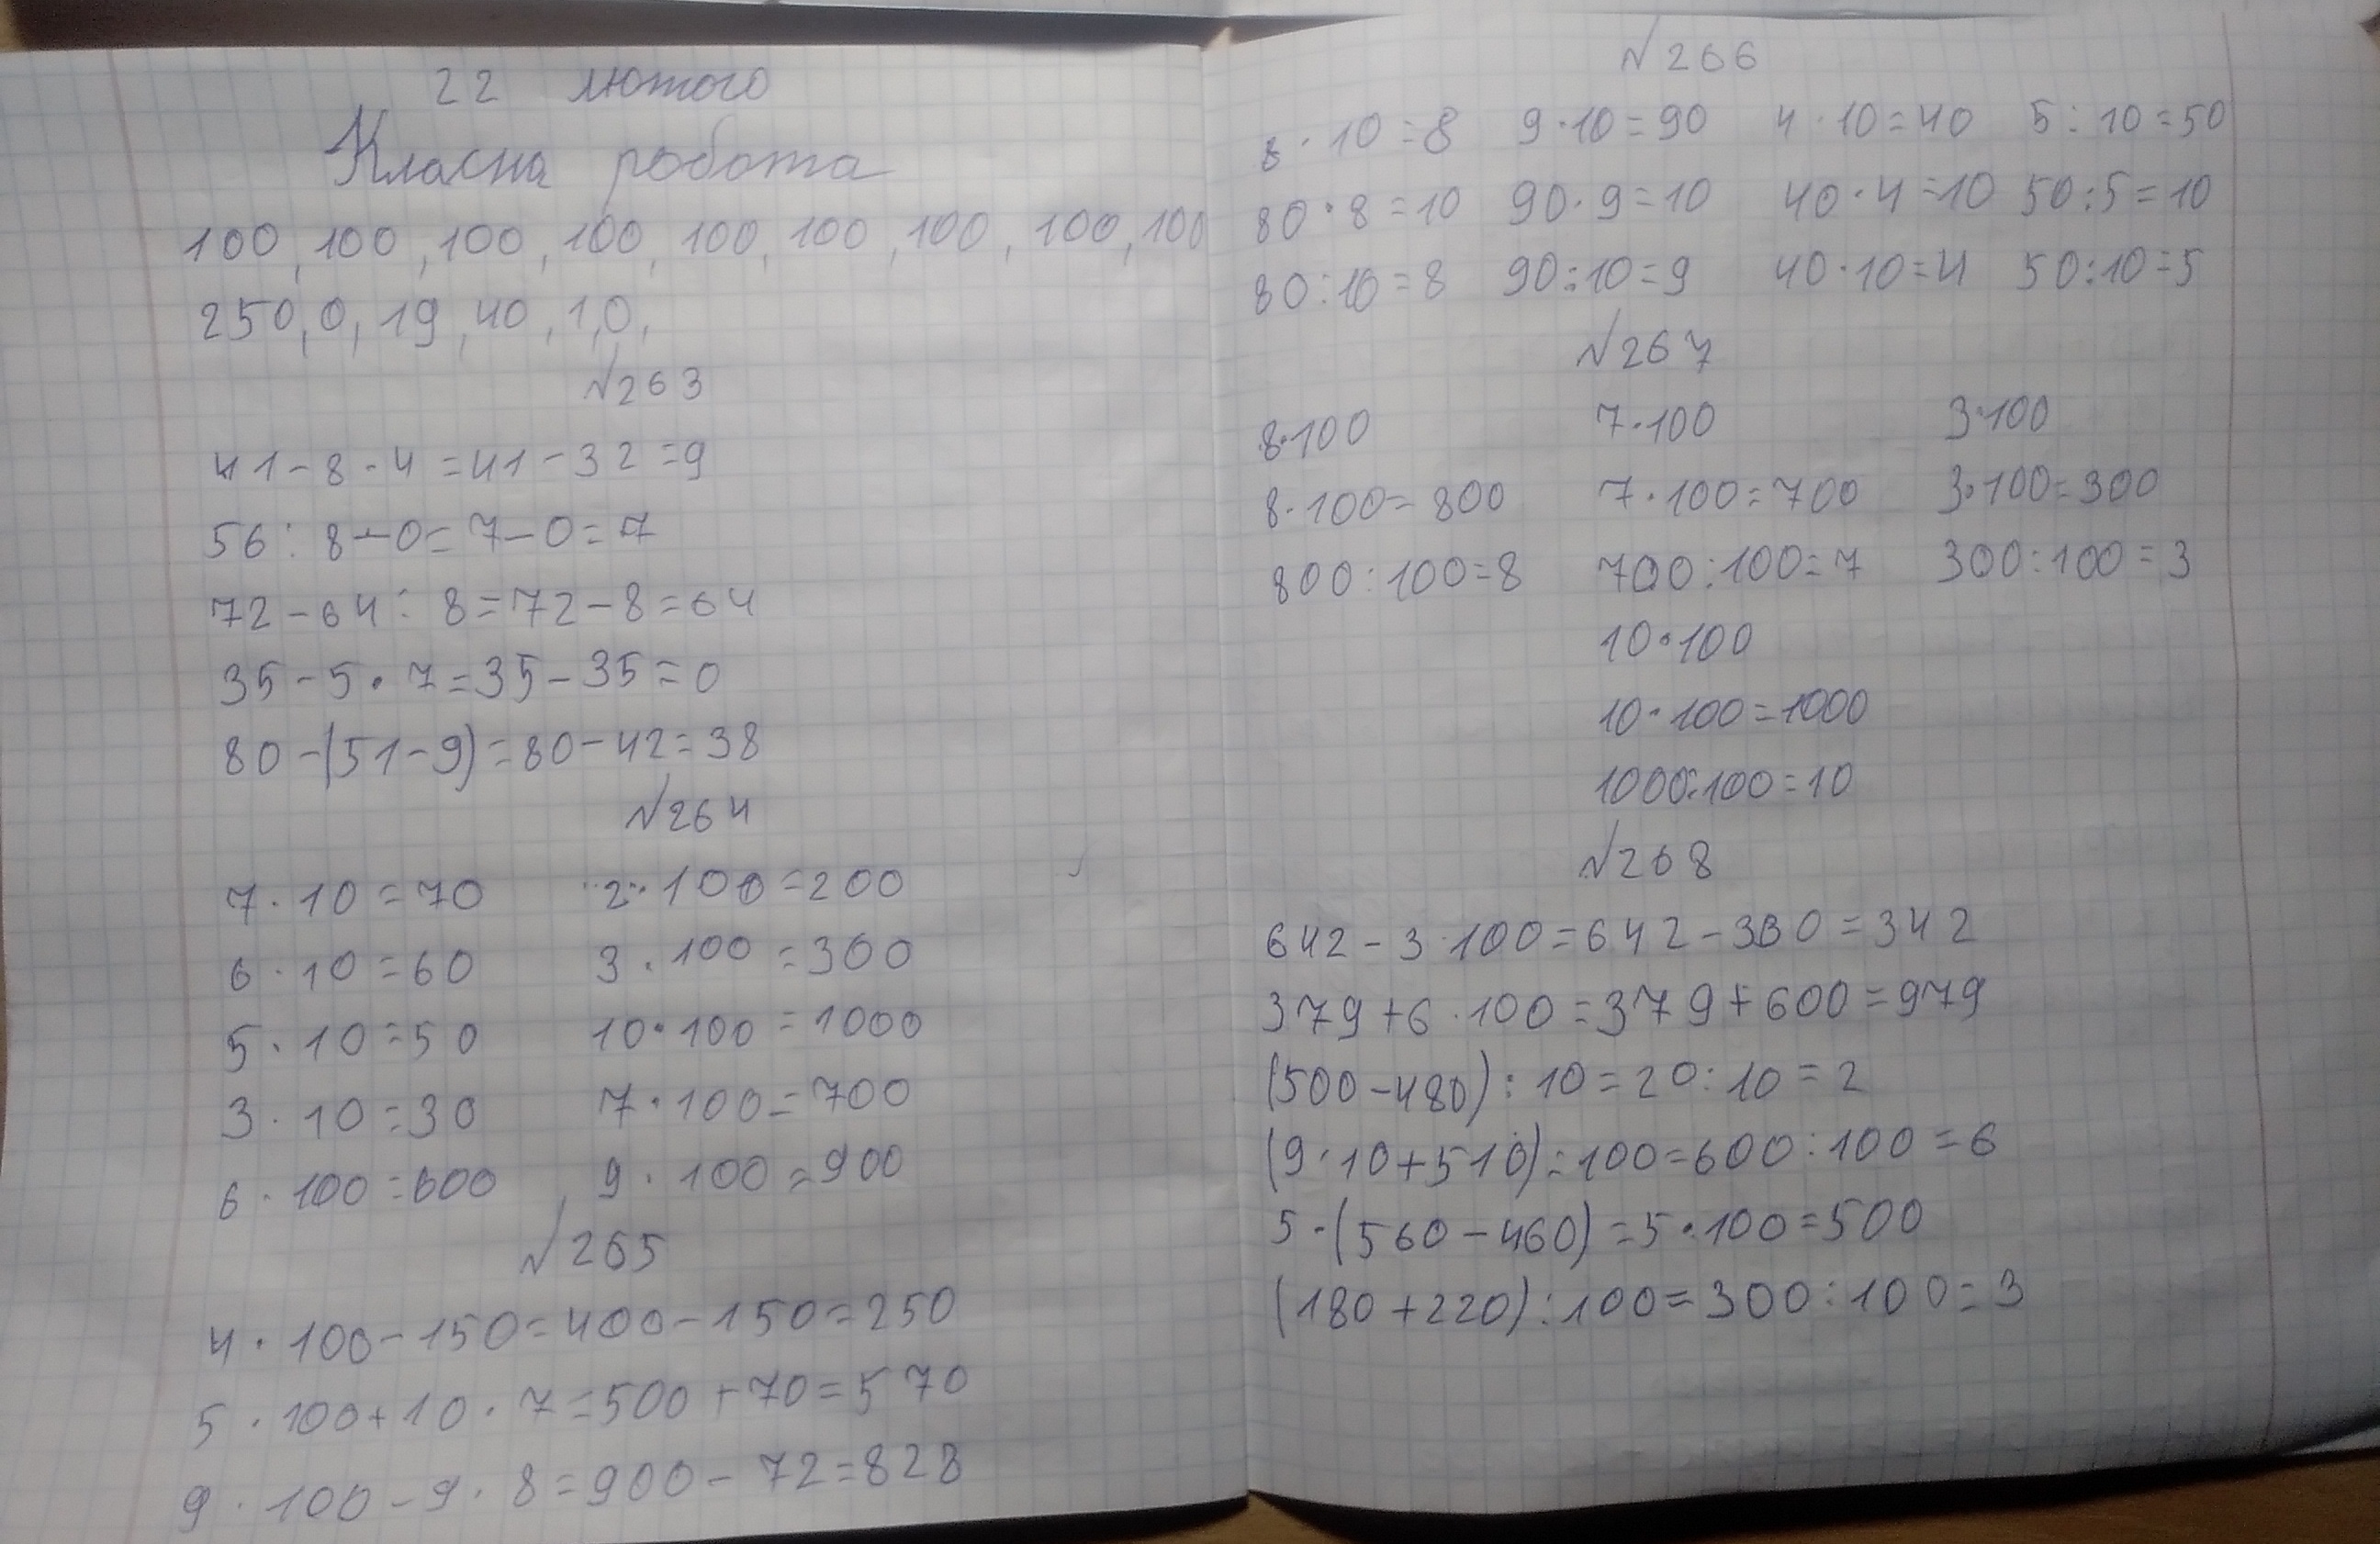 22 лютого
Класна робота
100, 100, 100, 100, 100, 100, 100, 100, 100
250, 0, 19, 40, 1, 0,
№263
41-8·4=41-32=9
56:8-0=7-0=7
72-64:8=72-8=64
35-5·7=35-35=0
80-(51-9)=80-42=38
№264
7·10=70 2·100=200
6·10=60 3·100=300
5·10=50 10·100=1000
3·10=30 7·100=700
6·100=600 9·100=900
№265
4·100-150=400-150=250
5·100+10·7=500+70=570
9·100-9·8=900-72=828
№266
8·10=8 9·10=90 4·10=40 5:10=50
80·8=10 90·9=10 40·4=10 50:5=10
80:10=8 90:10=9 40·10=4 50:10=5
№267
8·100 7·100 3·100
8·100=800 7·100=700 3·100=300
800:100=8 700:100=7 300:100=3
10·100
10·100=1000
1000:100=10
№268
642-3·100=642-300=342
379+6·100=379+600=979
(500-480):10=20:10=2
(9·10+510):100=600:100=6
5·(560-460)=5·100=500
(180+220):100=300:100=3